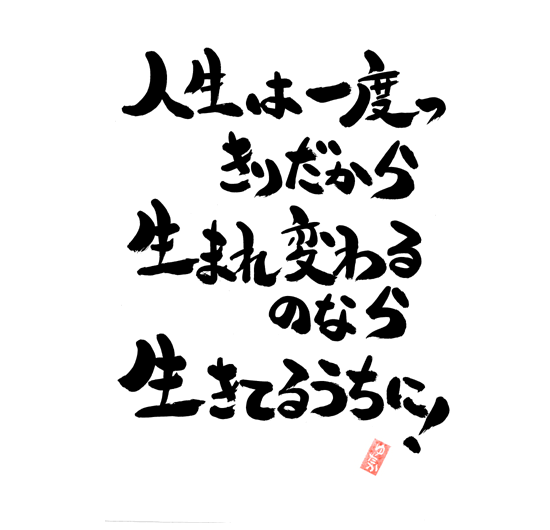 人生は一度っ
きりだから
生まれ変わる
のなら
生きてるうちに!
ゆたか